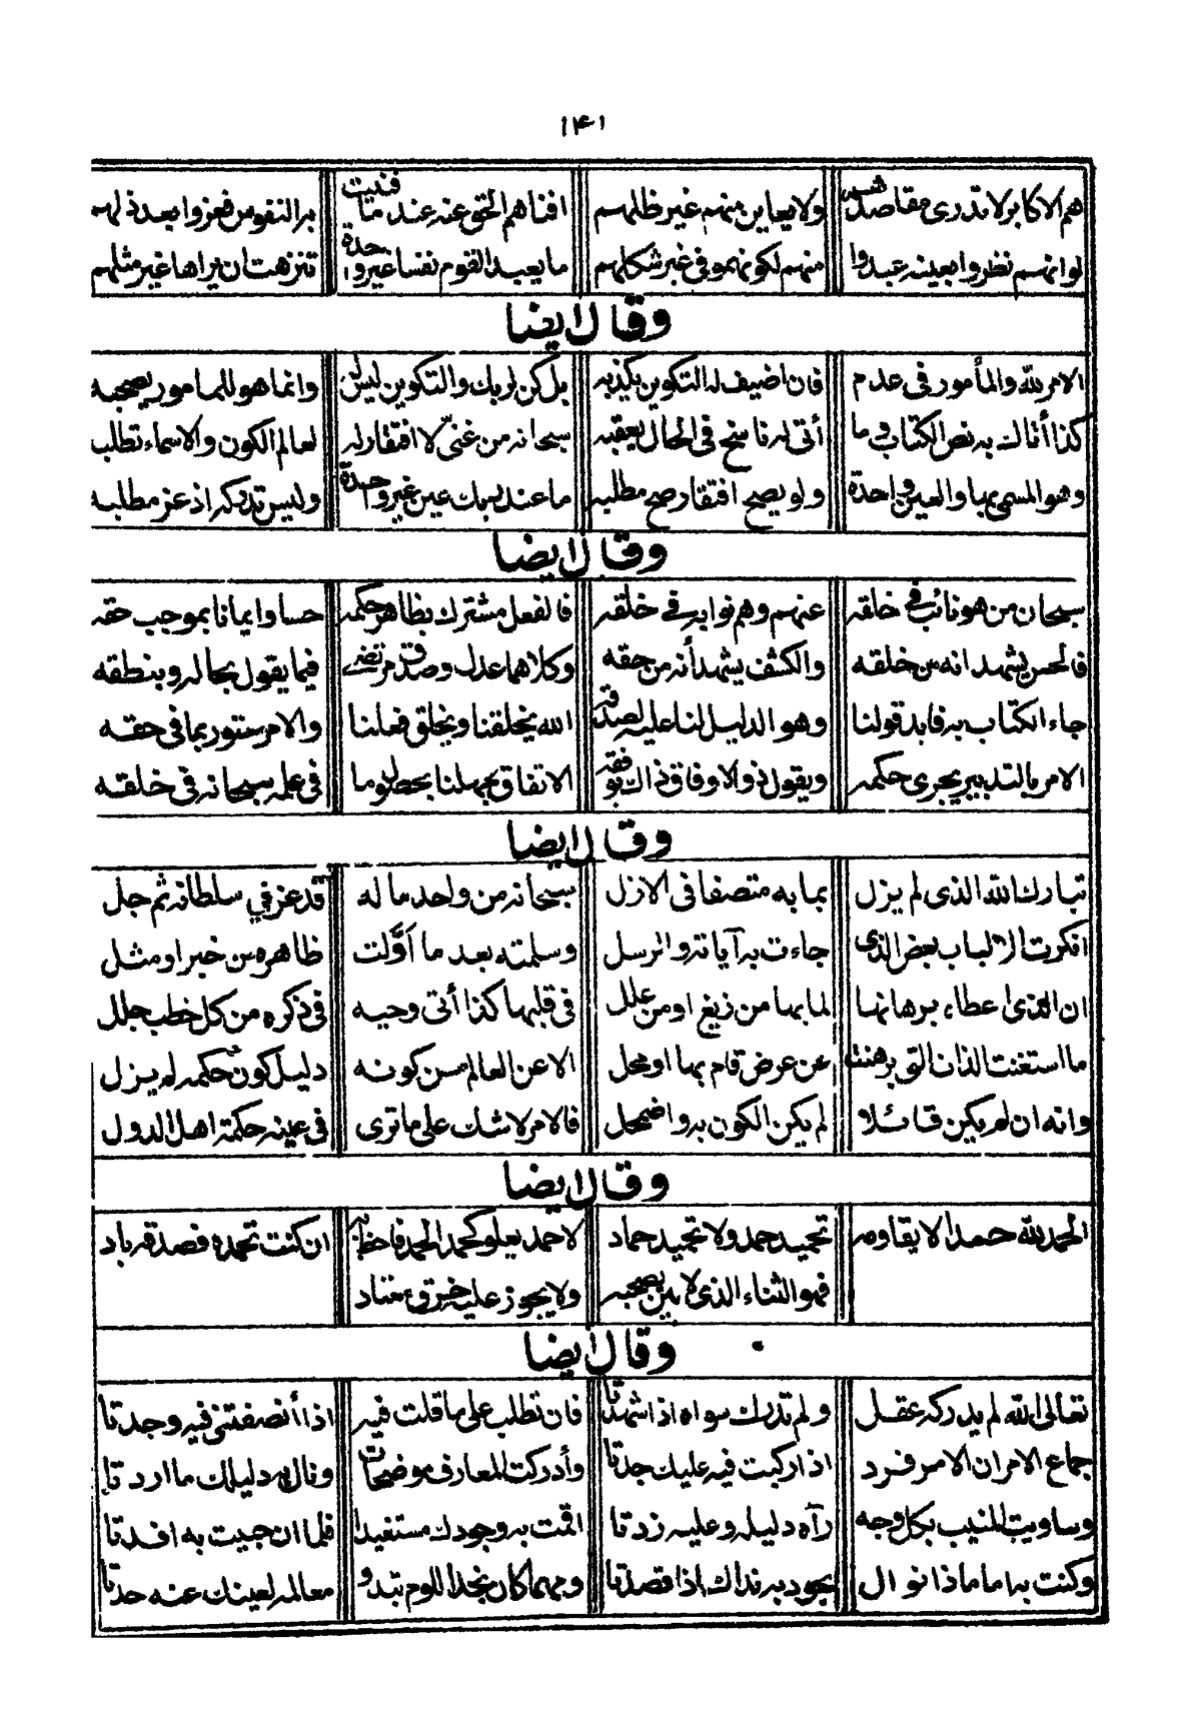 ١٤١
هم الاكابر لا تدرى مقاصدهم ولا يعاين منهم غير ظلهم افناهم الحق عنه عند ما فنيت بر النفوس فعزوا بعد ذلهم
لو انهم نظروا بعينه عبدوا منهم لكونهمو فى غير شكلهم ما يعبد القوم نفسا غير واحدة تنزهت ان يراها غير مثلهم
وقال ايضا
الامر لله والمأمور فى عدم فان اضيف له التكوين يكذبه بل كن لربك والتكوين ليس له وانما هو للمامور يصحبه
كذا أتاك به نص الكتاب وما أتى له ناسخ فى الحال يعقبه سبحانه من غنىّ لا افتقار له لعالم الكون والاسماء تطلب
وهو المسمى بها والعين واحدة ولو يصح افتقار صح مطلبه ما عند ربك عين غير واحدة وليس تدركه اذ عز مطلبه
وقال ايضا
سبحان من هو نائب فى خلقه عنهم وهم نوابه فى خلقه فالفعل مشترك بظاهر حكمه حسا وايمانا بموجب حقه
فالحس يشهد انه من خلقه والكشف يشهد أنه من حقه وكلاهما عدل وصدق مرتضى فيما يقول بحاله وبنطقه
جاء الكتاب به فايد قولنا وهو الدليل لنا عليه لصدقه الله يخلقنا ويخلق فعلنا والامر مستور بما فى حقه
الامر بالتدبير يجرى حكمه ويقول ذو الاوفاق ذاك بوفقه الاتفاق بجهلنا بحصول ما فى علمه سبحانه فى خلقه
وقال ايضا
تبارك الله الذى لم يزل بما به متصفا فى الازل سبحانه من واحد ما له قد عز في سلطانه ثم جل
انكرت الالباب بعض الذى جاءت به آياته والرسل وسلمته بعد ما اوّلت ظاهره من خبر او مثل
ان الذى اعطاء برهانها لما بها من زيغ او من علل فى قلبها كذا أتى وحيه فى ذكره من كل خطب جلل
ما استغنت الذات التى برهنت عن عرض قام بها او محل الا عن العالم من كونه دليل كون حكمه لم يزل
وانه ان لم يكن قائلا لم يكن الكون به واضمحل فالامر لا شك على ما ترى فى عينه حكمة اهل الدول
وقال ايضا
الحمد لله حمدا لا يقاومه تحميد حمد ولا تحميد حماد لا حمد يعلو كحمد الحمد فاحظ به ان كنت تحمده فصدقه باد
فهو الثناء الذى لا مين يصحبه ولا يجوز عليه خرق معتاد
وقال ايضا
تعالى الله لم يدركه عقل ولم تدرك سواه اذا شهدتا فان تطلب على ما قلت فيه اذا أنصفتنى فيه وجدتا
جماع الامر ان الامر فرد اذا ركبت فيه عليك جدتا وأدركت المعارف موضحات ونال به دليلك ما اردتا
وساويت المنيب بكل وجه رآه دليله وعليه زدتا اقمت به وجودك مستفيدا فلما ان جيت به افدتا
وكنت به اماما ذا نوال يجود به نداك اذا قصدتا ومهما كان نجد اللوم تبدو معالمه لعينك عنه حدتا